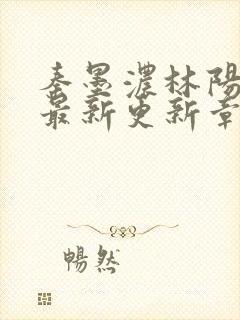 秦墨濃林陽
最新更新章
暢然